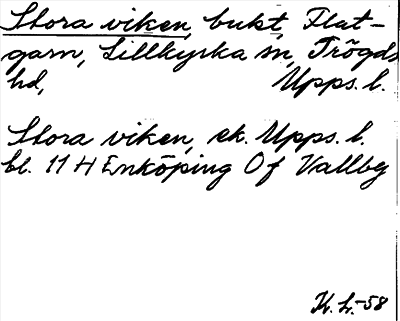 Stora viken, bukt, Flat-
garn, Lillkyrka sn, Trögds
hd, Upps. l.
Stora viken, ek. Upps. l.
bl. 11 H Enköping Of Vallby
K. L. -58